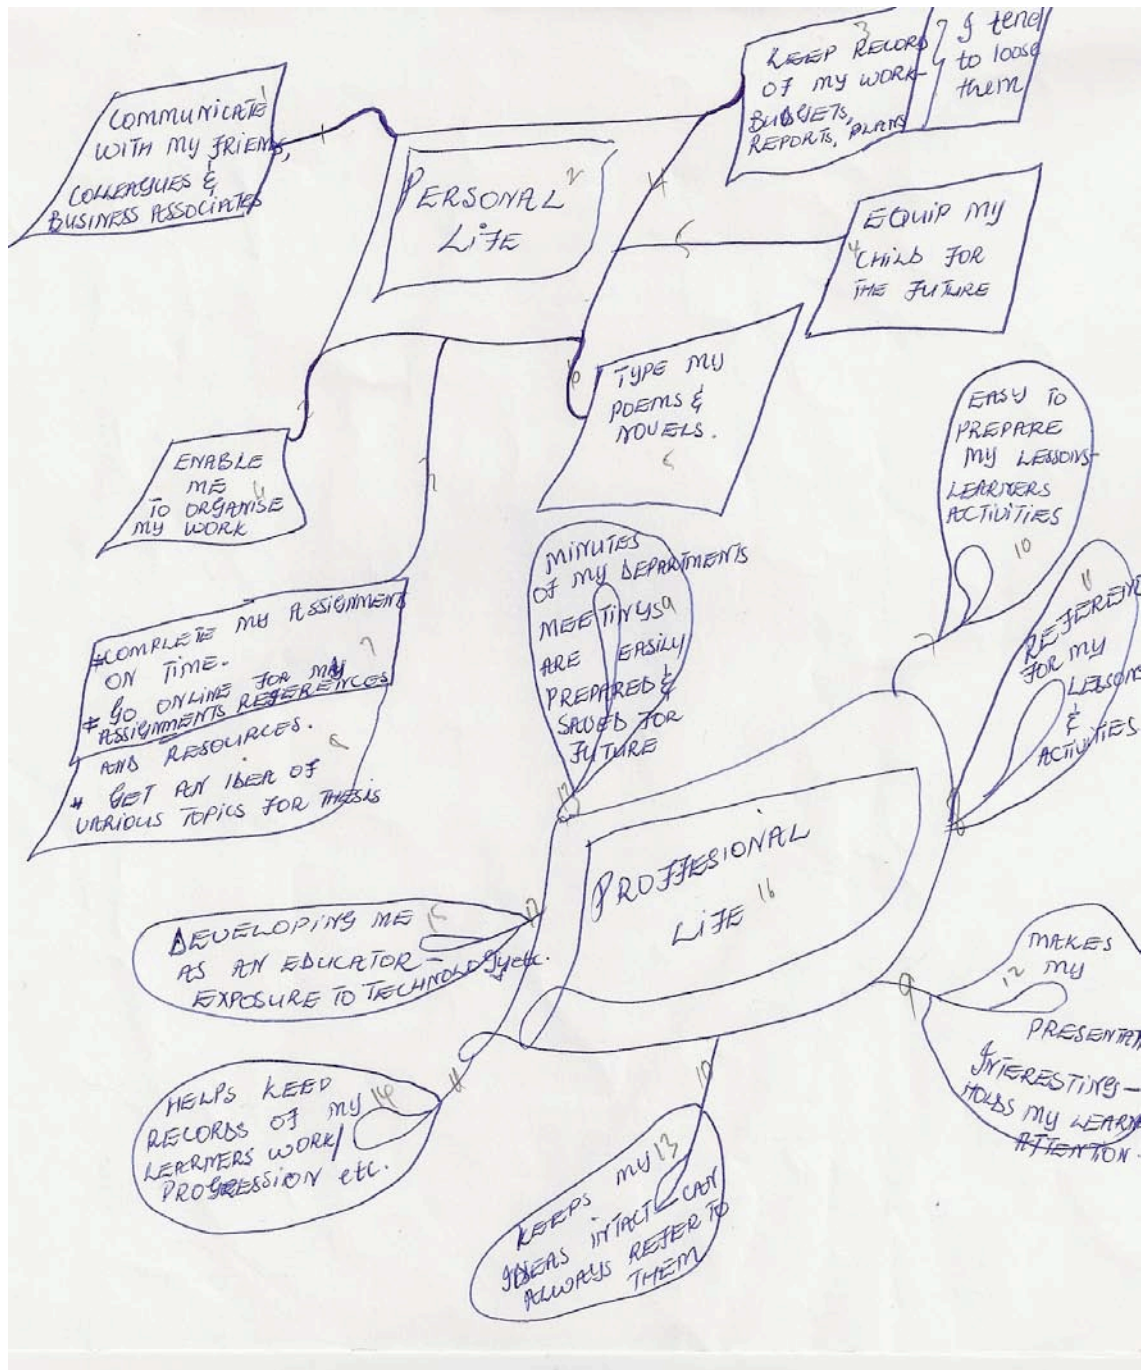 COMMUNICATE
WITH MY FRIENDS,
COLLEAGUES &
BUSINESS ASSOCIATES
1
PERSONAL 2
LIFE
KEEP RECORD 3
OF MY WORK-
BUDGETS,
REPORTS, PLANS
I tend
to loose
them
EQUIP MY
4 CHILD FOR
THE FUTURE
TYPE MY
POEMS &
NOVELS.
6
ENABLE
ME
TO ORGANISE
MY WORK
* COMPLETE MY ASSIGNMENT
ON TIME. 7
* GO ONLINE FOR MY
ASSIGNMENTS REFERENCES
AND RESOURCES.
* GET AN IDEA OF
VARIOUS TOPICS FOR THESIS
MINUTES
OF MY DEPARTMENTS
MEETINGS 9
ARE EASILY
PREPARED &
SAVED FOR
FUTURE
EASY TO
PREPARE
MY LESSONS-
LEARNERS
ACTIVITIES
10
11
FOR MY
LESSONS
&
ACTIVITIES
PROFFESIONAL
LIFE 16
DEVELOPING ME 15
AS AN EDUCATOR -
EXPOSURE TO TECHNOLOGY etc.
12
MAKES
MY 12
9
INTERESTING -
HOLDS MY
ATTENTION.
HELPS KEED
RECORDS OF MY 14
LEARNERS WORK/
PROGRESSION etc.
11
10
KEEPS MY 13
IDEAS INTACT - CAN
ALWAYS REFER TO
THEM